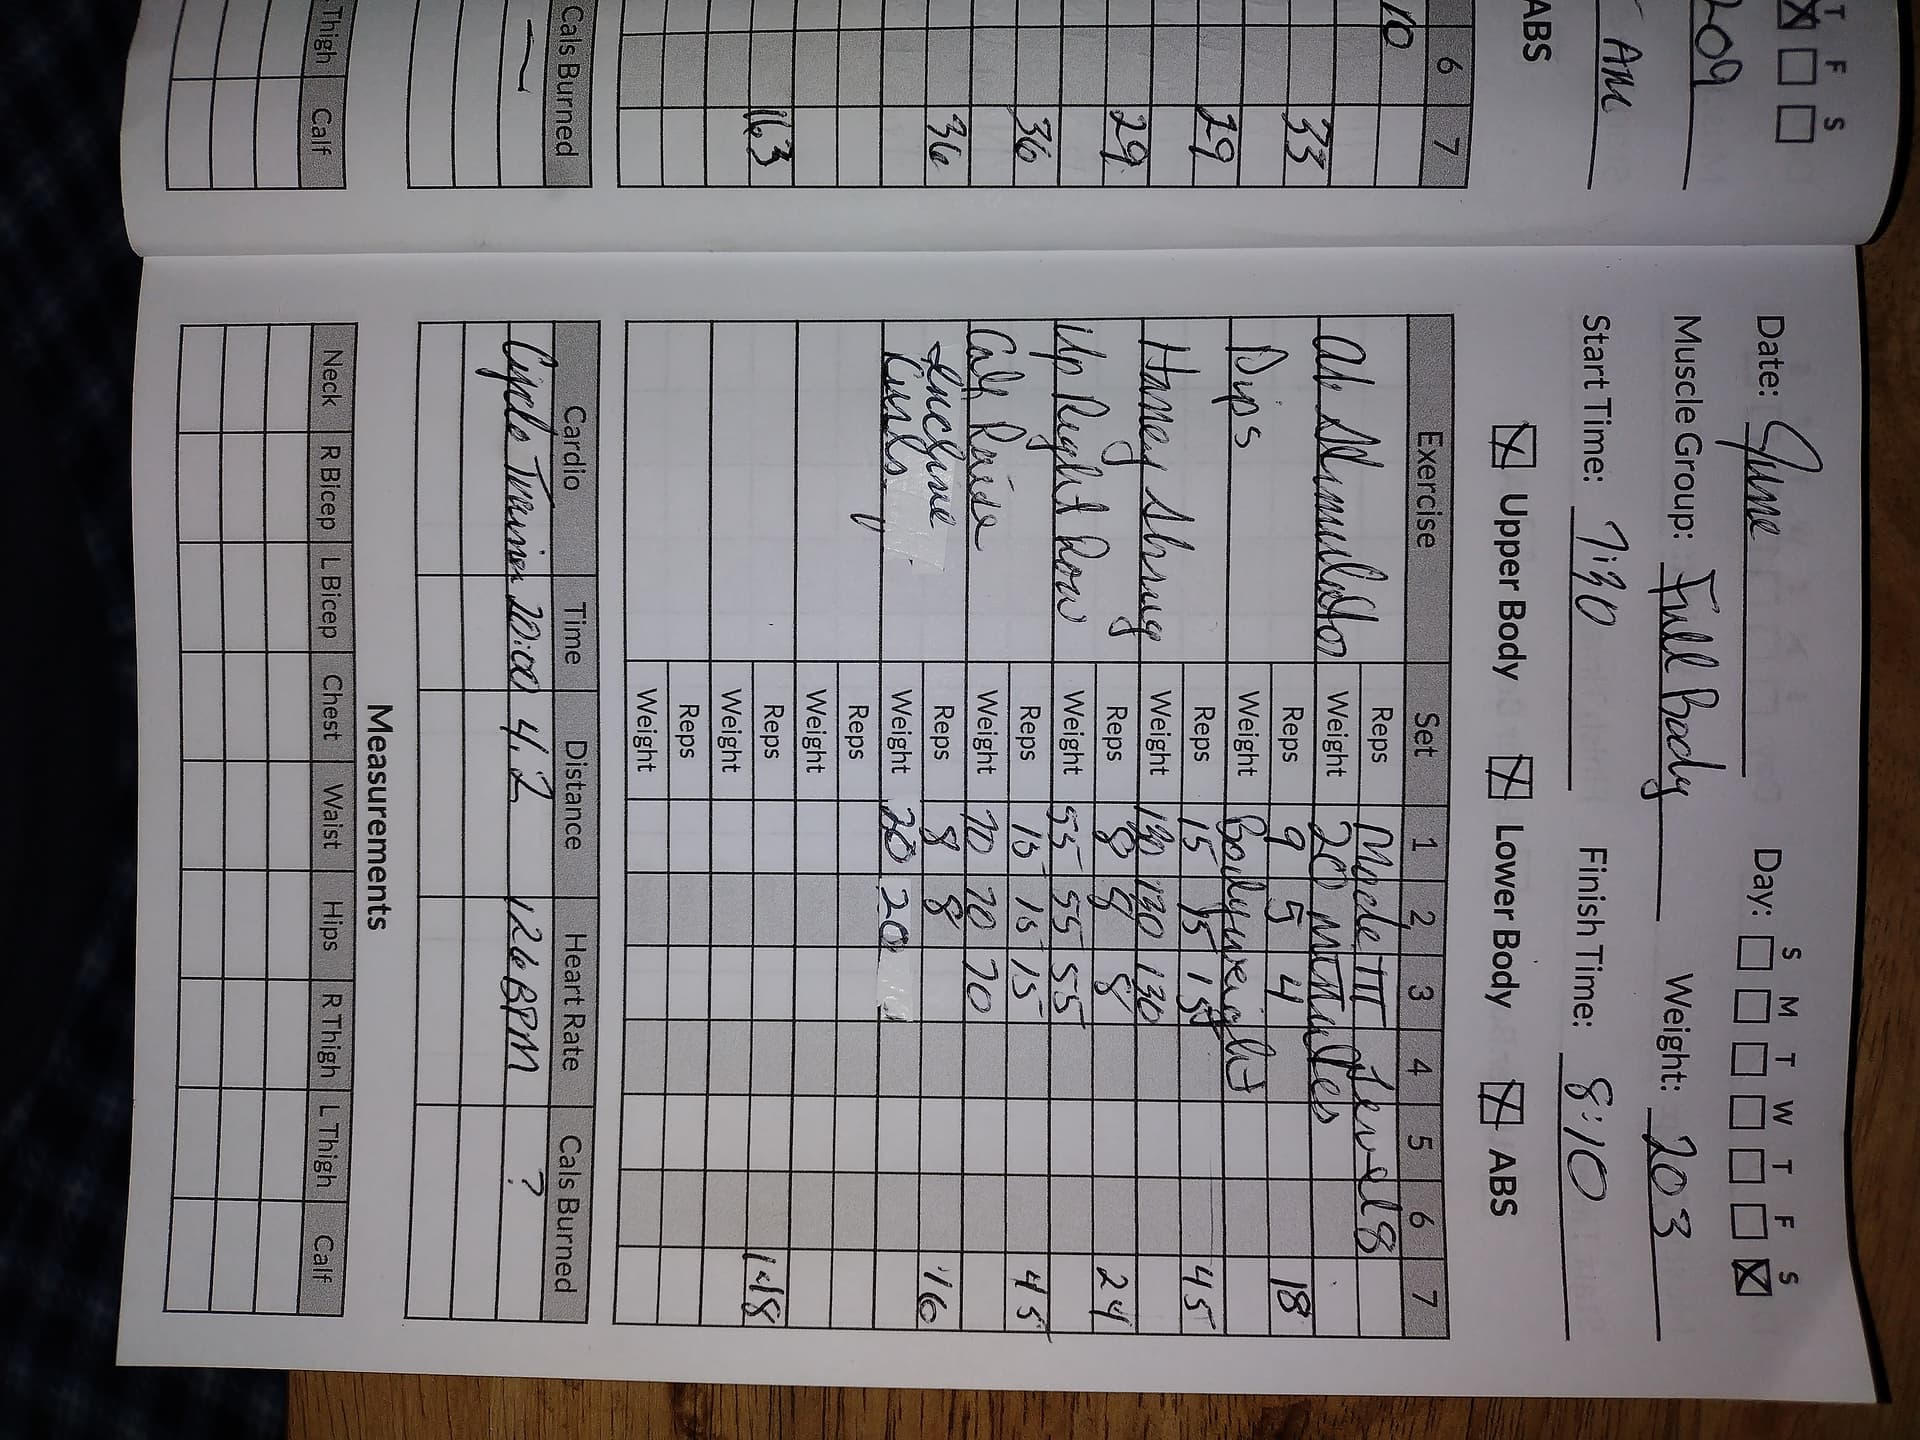 T F S
209
AM
ABS
6 7
10
33
29
29
36
36
163
Cals Burned
—
Thigh Calf
Date: June Day: S M T W T F S
Muscle Group: Full Body Weight: 203
Start Time: 7:30 Finish Time: 8:10
Upper Body Lower Body ABS
Exercise Set 1 2 3 4 5 6 7
Ab Stimulator Reps Mode III Level 8
Weight 20 minutes
Dips Reps 9 5 4 18
Weight Bodyweight
Hanes Shrug Reps 15 15 15 45
Weight 130 130 130
Up Right Row Reps 8 8 8 24
Weight 55 55 55
Calf Raise Reps 15 15 15 45
Weight 70 70 70
Incline Reps 8 8 16
Curls Weight 20 20
Reps
Weight
Reps 148
Weight
Reps
Weight
Cardio Time Distance Heart Rate Cals Burned
Cycle Trainer 20:00 4.2 126 BPM ?
Measurements
Neck R Bicep L Bicep Chest Waist Hips R Thigh L Thigh Calf